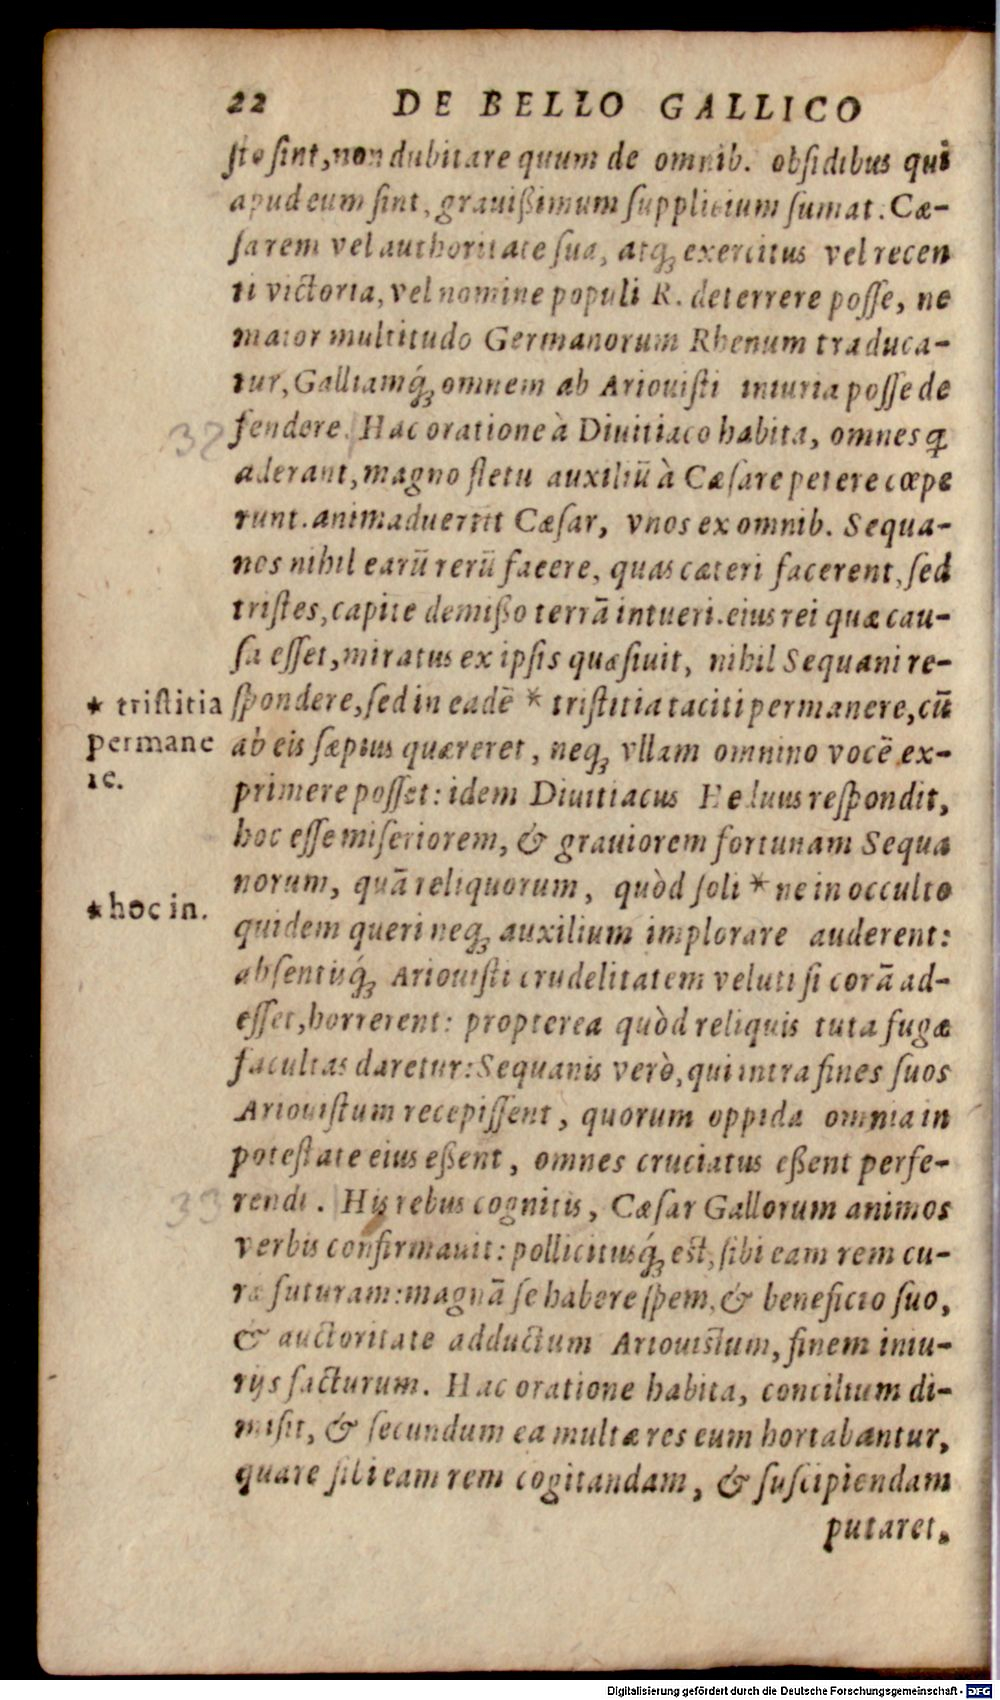 22 DE BELLO GALLICO
sto sint, non dubitare quum de omnib. obsidibus qui
apud eum sint, grauißimum supplicium sumat. Cæ-
sarem vel authoritate sua, atq; exercitus vel recen
ti victoria, vel nomine populi R. deterrere posse, ne
maior multitudo Germanorum Rhenum traduca-
tur, Galliamq́; omnem ab Ariouisti iniuria posse de
32 fendere. Hac oratione à Diuitiaco habita, omnes q
aderant, magno fletu auxiliū à Cæsare petere cœpe
runt. animaduertit Cæsar, vnos ex omnib. Sequa-
nos nihil earū rerū facere, quas cæteri facerent, sed
tristes, capite demißo terrā intueri. eius rei quæ cau-
sa esset, miratus ex ipsis quæsiuit, nihil Sequani re-
* tristitia
permane
re.
spondere, sed in eadē * tristitia taciti permanere, cū
ab eis sæpius quæreret, neq; vllam omnino vocē ex-
primere posset: idem Diuitiacus Heduus respondit,
hoc esse miseriorem, & grauiorem fortunam Sequa
norum, quā reliquorum, quòd soli * ne in occulto
* hoc in.
quidem queri neq; auxilium implorare auderent:
absentisq́; Ariouisti crudelitatem veluti si corā ad-
esset, horrerent: propterea quòd reliquis tuta fugæ
facultas daretur: Sequanis verò, qui intra fines suos
Ariouistum recepissent, quorum oppida omnia in
potestate eius eßent, omnes cruciatus eßent perfe-
33 rendi. His rebus cognitis, Cæsar Gallorum animos
verbis confirmauit: pollicitusq́; est, sibi eam rem cu-
ræ futuram: magnā se habere spem, & beneficio suo,
& auctoritate adductum Ariouistum, finem iniu-
rijs facturum. Hac oratione habita, concilium di-
misit, & secundum ea multæ res eum hortabantur,
quare sibi eam rem cogitandam, & suscipiendam
putaret,
Digitalisierung gefördert durch die Deutsche Forschungsgemeinschaft - DFG